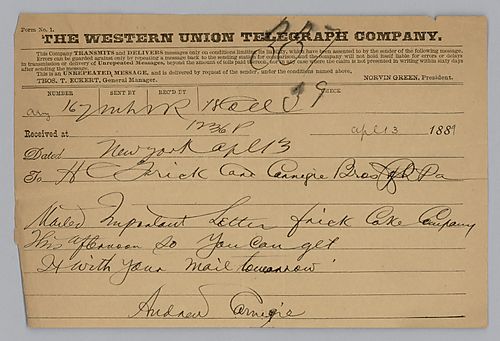 Form No. 1.
THE WESTERN UNION TELEGRAPH COMPANY.
This Company TRANSMITS and DELIVERS messages only on conditions limiting its liability, which have been assented to by the sender of the following message.
Errors can be guarded against only by repeating a message back to the sending station for comparison, and the Company will not hold itself liable for errors or delays
in transmission or delivery of Unrepeated Messages, beyond the amount of tolls paid thereon, nor in any case where the claim is not presented in writing within sixty days
after sending the message.
This is an UNREPEATED MESSAGE, and is delivered by request of the sender, under the conditions named above.
THOS. T. ECKERT, General Manager. NORVIN GREEN, President.
NUMBER SENT BY REC'D BY CHECK
167 18
1236 P
Received at apl 13 1889
Dated New York apl 13
To H C Frick Care Carnegie Bros Pa
Mailed Important Letter frick Coke Company
This afternoon so You Can get
It with Your mail tomorrow
Andrew Carnegie